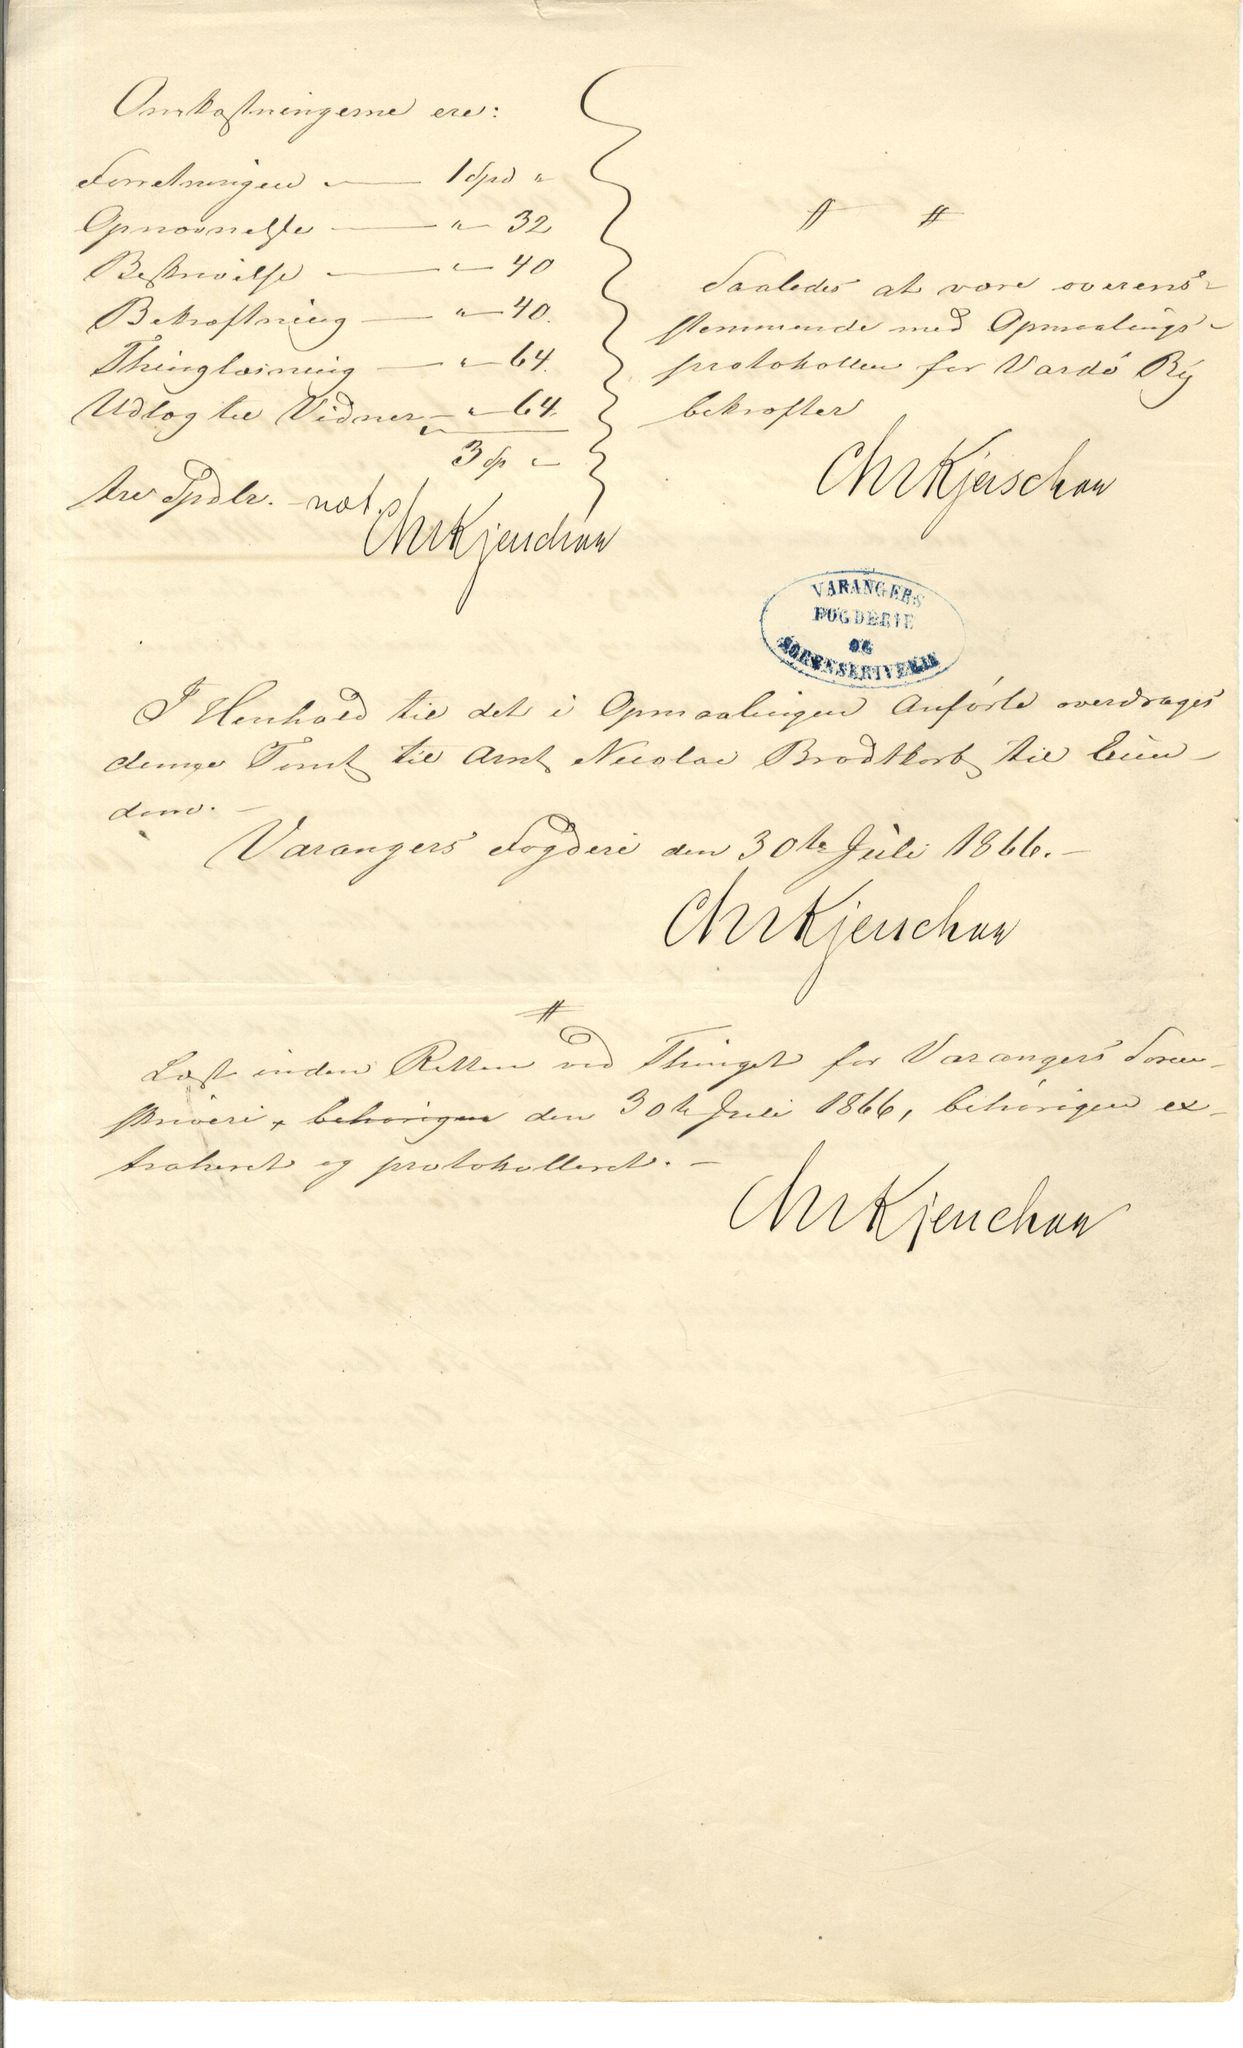 Omkostningerne ere:
Forretningen — 1 Spd "
Opnævnelse — " — 32
Beskrivelse — " — 40
Bekræftning — " — 40.
Thinglæsning — " — 64.
Udlæg til Vidner — " — 64.
3 Sp "
tre Spdlr. — not.
Chr Kjerschow
# #
Saaledes at være overens-
stemmende med Opmaalings-
protokollen for Vardö By
bekræfter
Chr Kjerschow
VARANGERS
FOGDERIE
OG
SORENSKRIVERIE
I Henhold til det i Opmaalingen Anförte overdrages
denne Tomt til Arnt Nicolai Brodtkorb til Eien-
dom. —
Varangers Fogderi den 30te Juli 1866. —
Chr Kjerschow
#
Læst inden Retten ved Thinget for Varangers Soren-
skriveri, behörigen den 30te Juli 1866, behörigen ex-
traheret og protokolleret. —
Chr Kjerschow